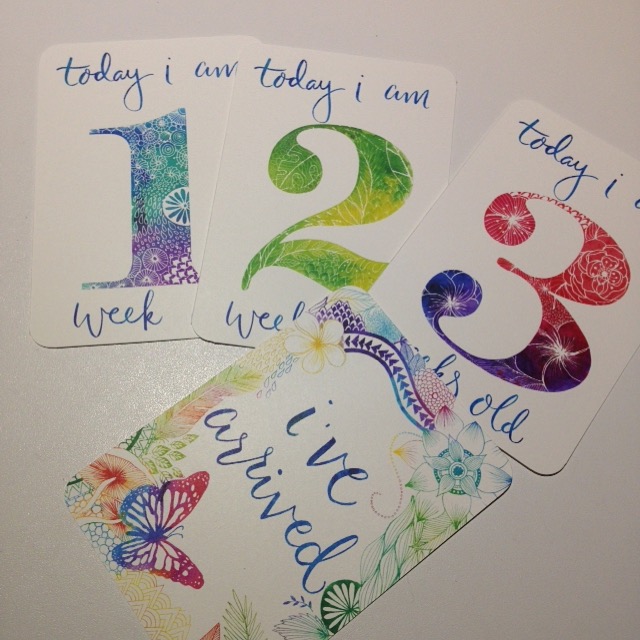 today i am
1
week
today i am
2
today i
3
old
i've
arrived